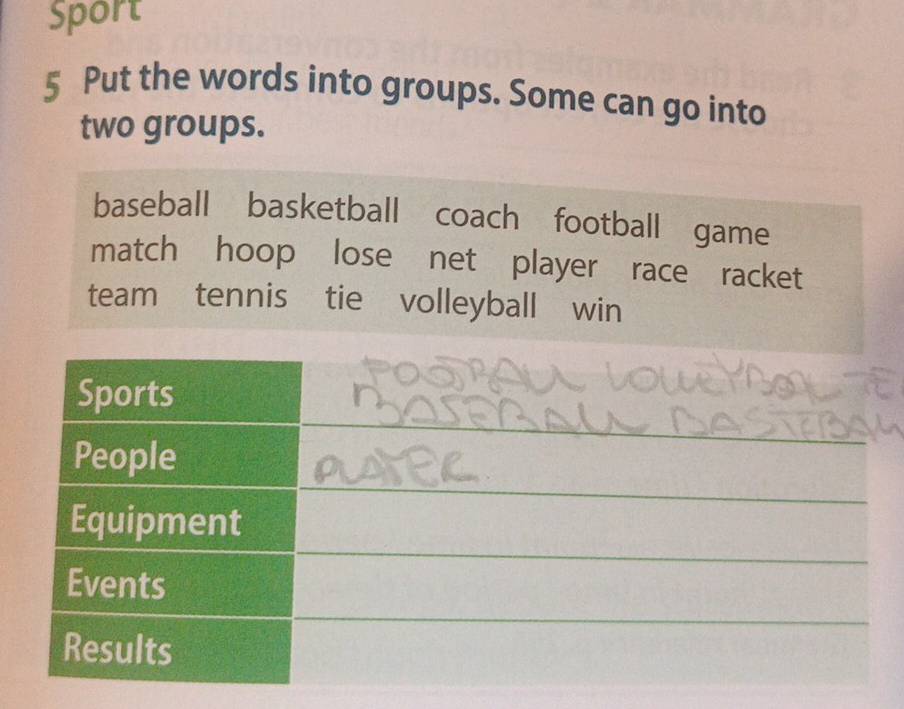 Sport
5 Put the words into groups. Some can go into
two groups.
baseball basketball coach football game
match hoop lose net player race racket
team tennis tie volleyball win
Sports
FOOTBALL VOLLEYBALL TE
BASEBALL BASTEBAL
People PLAYER
Equipment
Events
Results